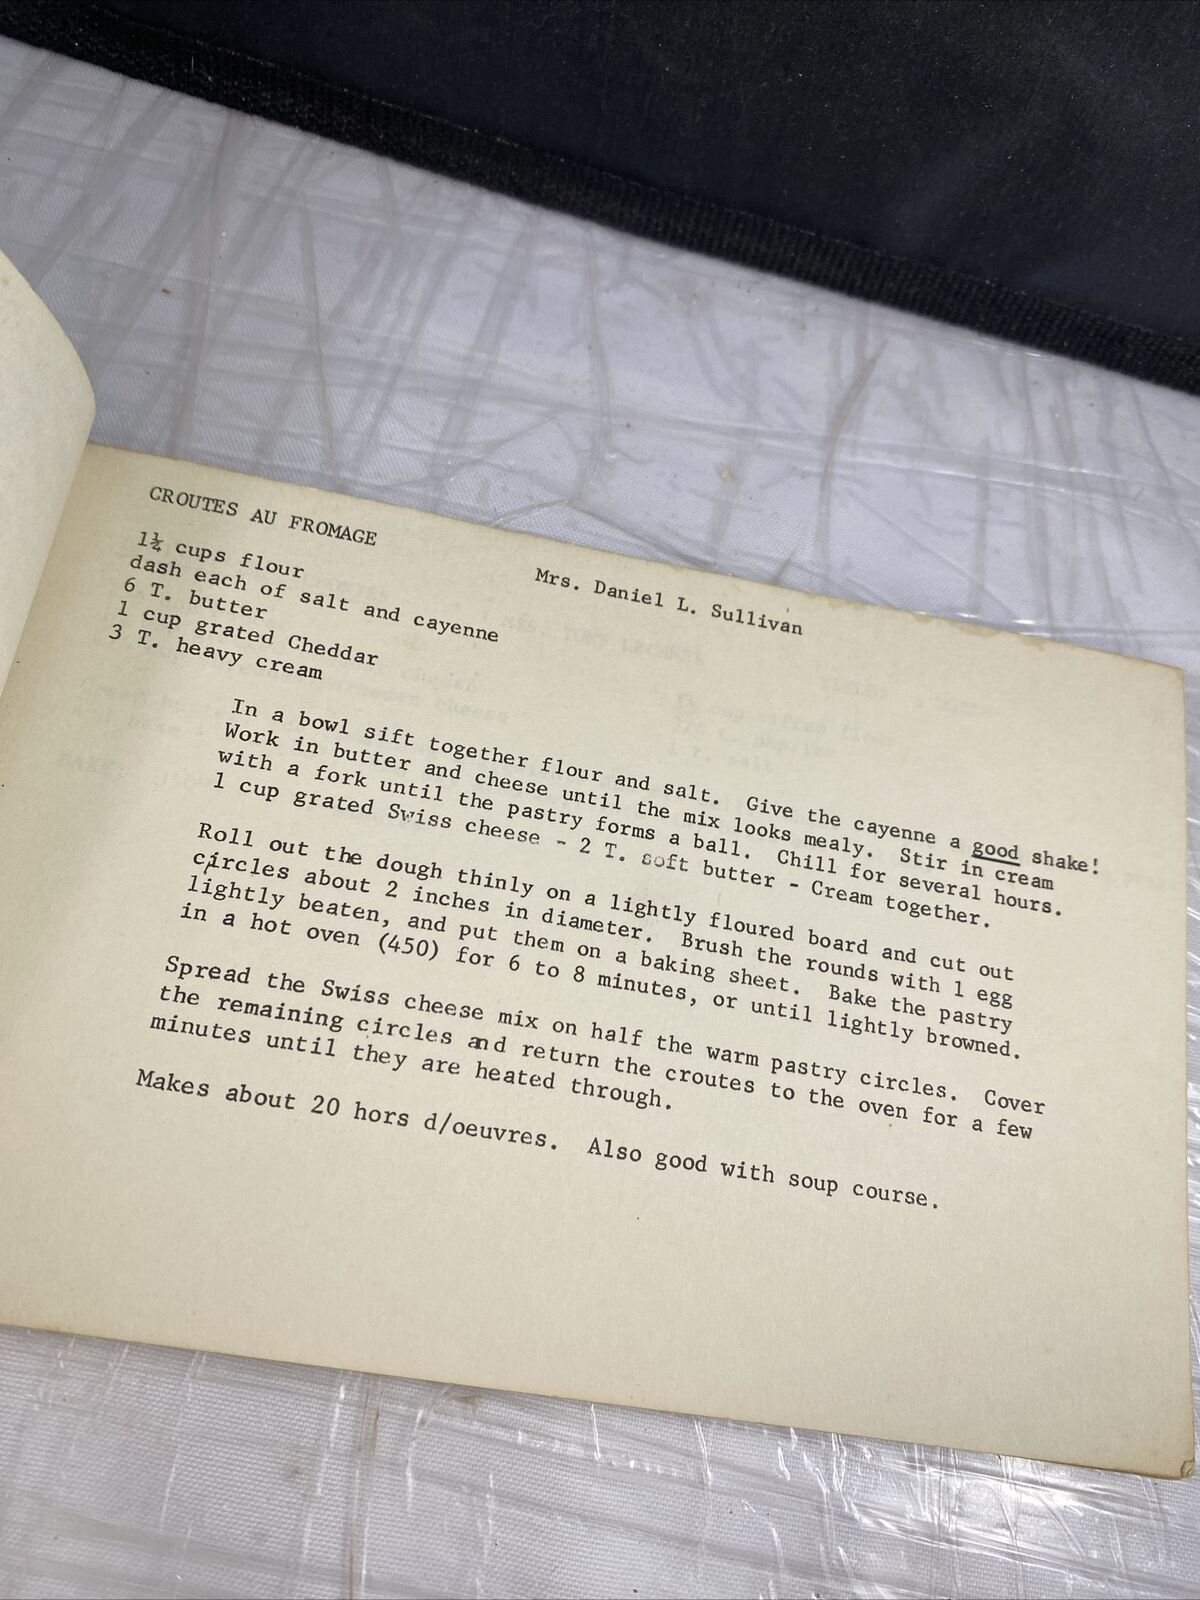 CROUTES AU FROMAGE
Mrs. Daniel L. Sullivan
1¼ cups flour
dash each of salt and cayenne
6 T. butter
1 cup grated Cheddar
3 T. heavy cream
In a bowl sift together flour and salt. Give the cayenne a good shake!
Work in butter and cheese until the mix looks mealy. Stir in cream
with a fork until the pastry forms a ball. Chill for several hours.
1 cup grated Swiss cheese - 2 T. soft butter - Cream together.
Roll out the dough thinly on a lightly floured board and cut out
circles about 2 inches in diameter. Brush the rounds with 1 egg
lightly beaten, and put them on a baking sheet. Bake the pastry
in a hot oven (450) for 6 to 8 minutes, or until lightly browned.
Spread the Swiss cheese mix on half the warm pastry circles. Cover
the remaining circles and return the croutes to the oven for a few
minutes until they are heated through.
Makes about 20 hors d/oeuvres. Also good with soup course.